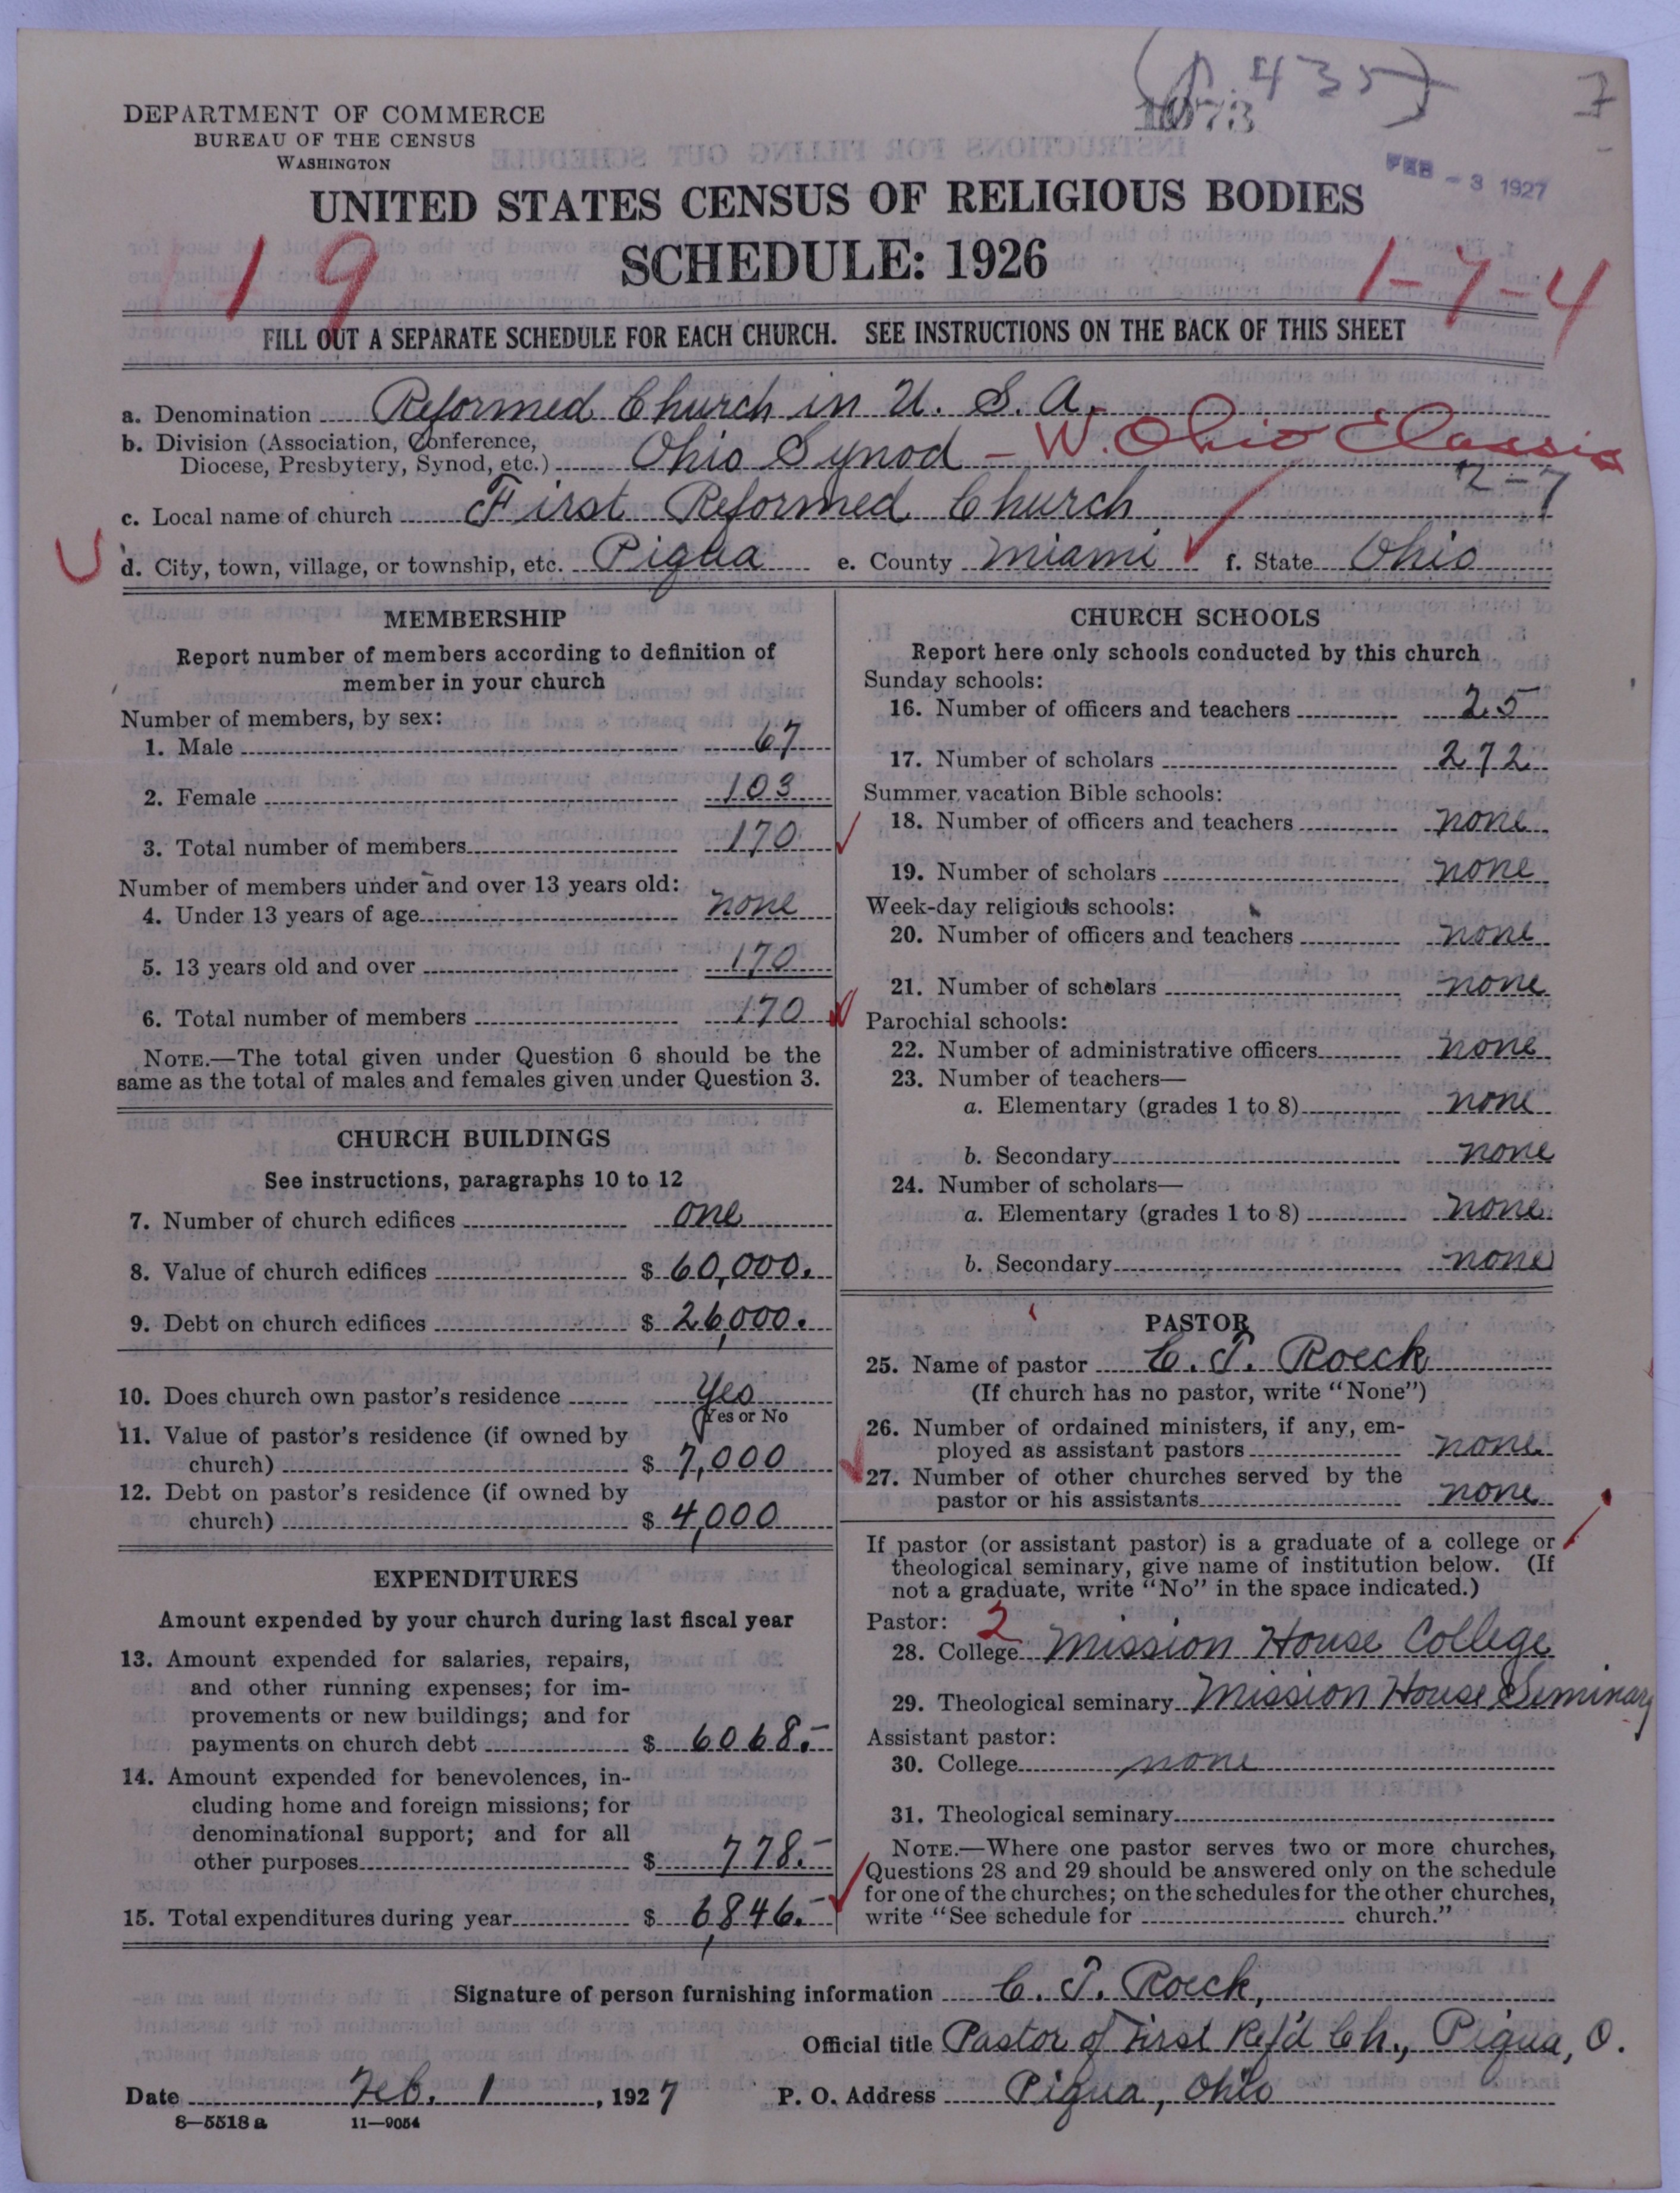 (p. 435)
1073
7
DEPARTMENT OF COMMERCE
BUREAU OF THE CENSUS
WASHINGTON
FEB - 3 1927
UNITED STATES CENSUS OF RELIGIOUS BODIES
SCHEDULE: 1926
19
1-7-4
FILL OUT A SEPARATE SCHEDULE FOR EACH CHURCH. SEE INSTRUCTIONS ON THE BACK OF THIS SHEET
a. Denomination Reformed Church in U. S. A.
b. Division (Association, Conference,
Diocese, Presbytery, Synod, etc.) Ohio Synod - W. Ohio Classis
2-7
c. Local name of church First Reformed Church
d. City, town, village, or township, etc. Piqua e. County Miami f. State Ohio
MEMBERSHIP
Report number of members according to definition of
member in your church
Number of members, by sex:
1. Male 67
2. Female 103
3. Total number of members 170
Number of members under and over 13 years old:
4. Under 13 years of age none
5. 13 years old and over 170
6. Total number of members 170
NOTE.—The total given under Question 6 should be the
same as the total of males and females given under Question 3.
CHURCH BUILDINGS
See instructions, paragraphs 10 to 12
7. Number of church edifices one
8. Value of church edifices $ 60,000.
9. Debt on church edifices $ 26,000.
10. Does church own pastor's residence Yes
(Yes or No
11. Value of pastor's residence (if owned by
church) $ 7,000
12. Debt on pastor's residence (if owned by
church) $ 4,000
EXPENDITURES
Amount expended by your church during last fiscal year
13. Amount expended for salaries, repairs,
and other running expenses; for im-
provements or new buildings; and for
payments on church debt $ 6068.-
14. Amount expended for benevolences, in-
cluding home and foreign missions; for
denominational support; and for all
other purposes $ 778.-
15. Total expenditures during year $ 6,846.-
CHURCH SCHOOLS
Report here only schools conducted by this church
Sunday schools:
16. Number of officers and teachers 25
17. Number of scholars 272
Summer vacation Bible schools:
18. Number of officers and teachers none
19. Number of scholars none
Week-day religious schools:
20. Number of officers and teachers none
21. Number of scholars none
Parochial schools:
22. Number of administrative officers none
23. Number of teachers—
a. Elementary (grades 1 to 8) none
b. Secondary none
24. Number of scholars—
a. Elementary (grades 1 to 8) none
b. Secondary none
PASTOR
25. Name of pastor C. T. Roeck
(If church has no pastor, write "None")
26. Number of ordained ministers, if any, em-
ployed as assistant pastors none
27. Number of other churches served by the
pastor or his assistants none
If pastor (or assistant pastor) is a graduate of a college or
theological seminary, give name of institution below. (If
not a graduate, write "No" in the space indicated.)
Pastor: 2
28. College Mission House College
29. Theological seminary Mission House Seminary
Assistant pastor:
30. College none
31. Theological seminary
NOTE.—Where one pastor serves two or more churches,
Questions 28 and 29 should be answered only on the schedule
for one of the churches; on the schedules for the other churches,
write "See schedule for church."
Signature of person furnishing information C. T. Roeck,
Official title Pastor of First Ref'd Ch., Piqua, O.
Date Feb. 1, 1927 P. O. Address Piqua, Ohio
8—5518 a 11—9054